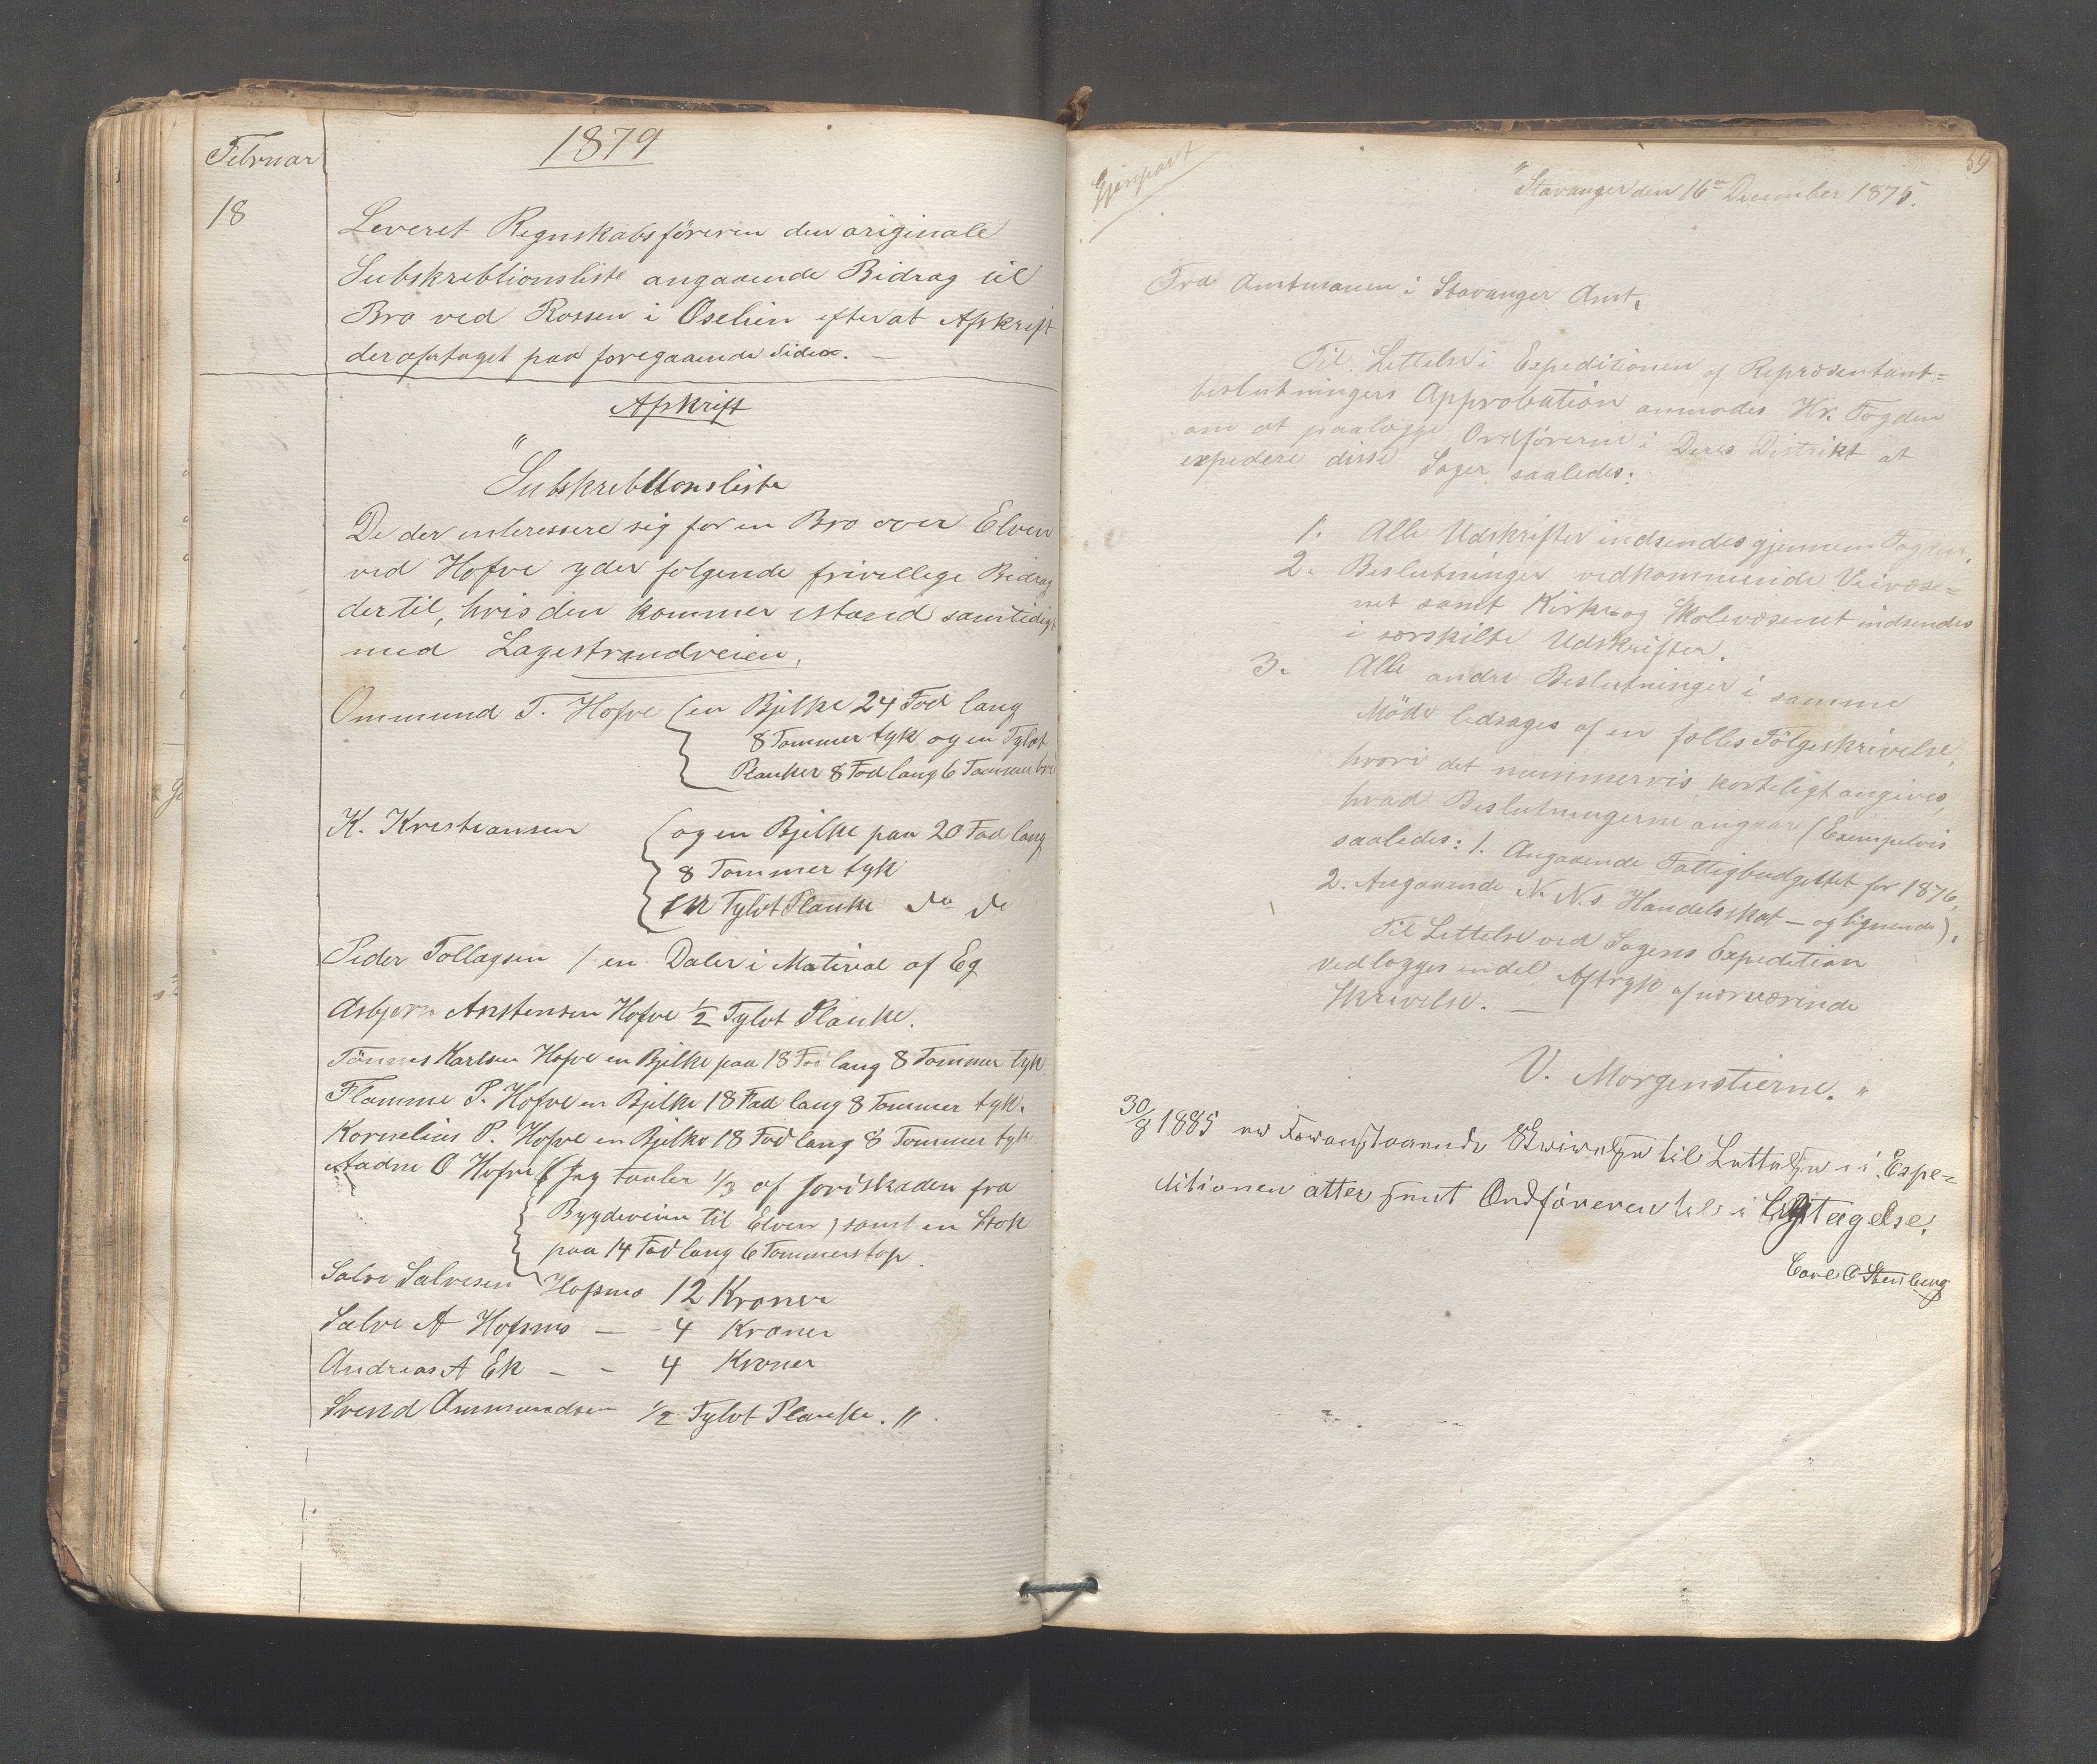 Februar
1879
18
Leveret Regnskabsföreren den originale
Subskrebtionsliste angaaende Bidrag til
Bro ved Rossen i Øselien efterat Afskrift
deraf er taget paa foregaaende Side.
Afskrift
"Subskrebtionsliste
De der interessere sig for en Bro over Elven
ved Hofve yder følgende frivellege Bidrag
dertil, hvis den kommer istand samtidigt
med Lagestrandveien,
Ommund T. Hofve (en Bjelke 24 Fod lang
8 Tommer tyk og en Tylvt
Planker 8 Fod lang 6 Tommer
K. Krestiansen (og en Bjelke paa 20 Fod lang
8 Tommer tyk
en Tylvt Planke do do
Peder Tollagsen / en Daler i Material af Eg
Asbjørn Anstensen Hofve ½ Tylvt Planke.
Tönnes Karlsen Hofve en Bjelke paa 18 Fod lang 8 Tommer tyk
Flamme P. Hofve en Bjelke 18 Fod lang 8 Tommer tyk.
Kornelius P. Hofve en Bjelke 18 Fod lang 8 Tommer tyk
Aadne O Hofve (Jeg taaler ⅓ af Jordskaden fra
Bygdeveien til Elven, samt en Stok
paa 14 Fod lang 6 Tommerstop.
Salve Salvesen Hofsmo 12 Kroner
Salve A Hofsmo — - 4 Kroner
Andreas A Ek - - 4 Kroner
Svend Ommundsen ½ Tylvt Planke. "
Gjenpart
59
"Stavanger den 16de December 1875.
Fra Amtmanen i Stavanger Amt,
Til Lettelse i Expeditionen af Repræsentant=
beslutningers Approbation anmodes Hr. Fogden
om at paalægge Ordförerne i Deres Distrikt at
expedere disse Sager saaledes:
1. Alle Udskrifter indsendes gjennem Fogden,
2. Beslutninger vedkommende Veivæse=
net samt Kirke og Skolevæsenet indsendes
i særskilte Udskrifter.
3. Alle andre Beslutninger i samme
Möde ledsages af en fælles Fölgeskrivelse,
hvori det nummervis korteligt angives,
hvad Beslutningerne angaar (Exempelvis
saaledes: 1. Angaaende Fattigbudgettet for 1876,
2. Angaaende N. N.s Handelsskat — og lignende),
Til Lettelse ved Sagens Expedition
vedlægges endel Aftryk af nærværende
Skrivelse. —
V. Morgenstierne. "
30/8 1885 er Foranstaaende Skrivelse til Lettelse i Expe=
ditionen atter sent Ordföreren til Iagttagelse.
Carl O Stenberg